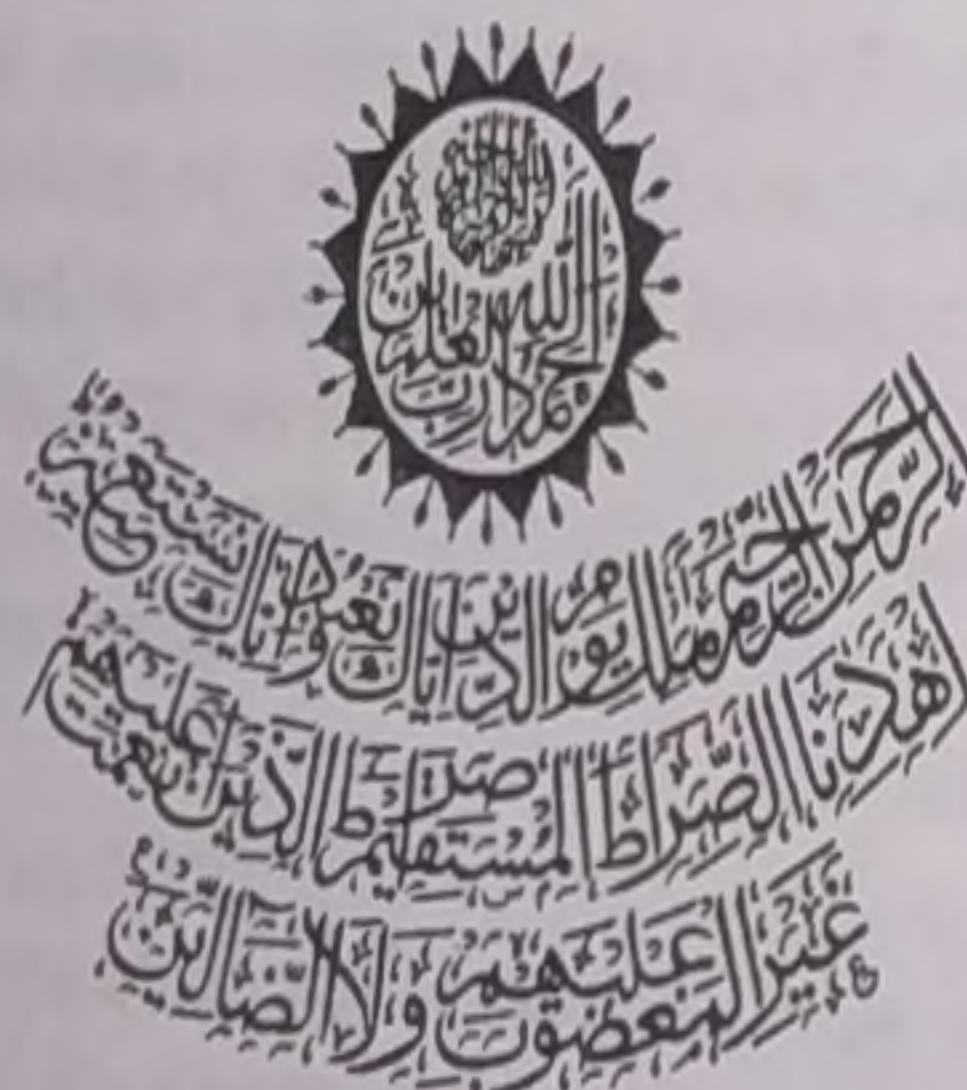 الحمد لله رب العلمين
الرحمن الرحيم ملك يوم الدين اياك نعبد واياك نستعين
اهدنا الصراط المستقيم صراط الذين انعمت عليهم
غير المغضوب عليهم ولا الضالين